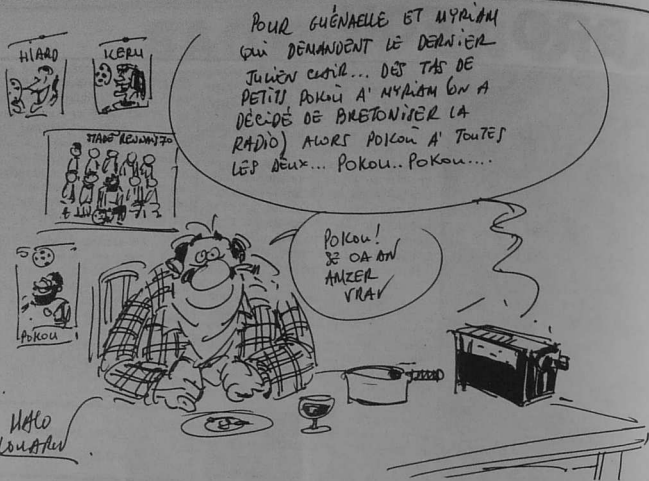 HIARD
KERU
STADE RENNAIS 70
POKOU
POUR GUÉNAELLE ET MYRIAM
QUI DEMANDENT LE DERNIER
JULIEN CLAIR... DES TAS DE
PETITS POKOÙ A' MYRIAM (ON A
DÉCIDÉ DE BRETONISER LA
RADIO) ALORS POKOÙ A' TOUTES
LES DEUX... POKOU.. POKOU....
POKOU!
SE OA AN
AMZER
VRAV